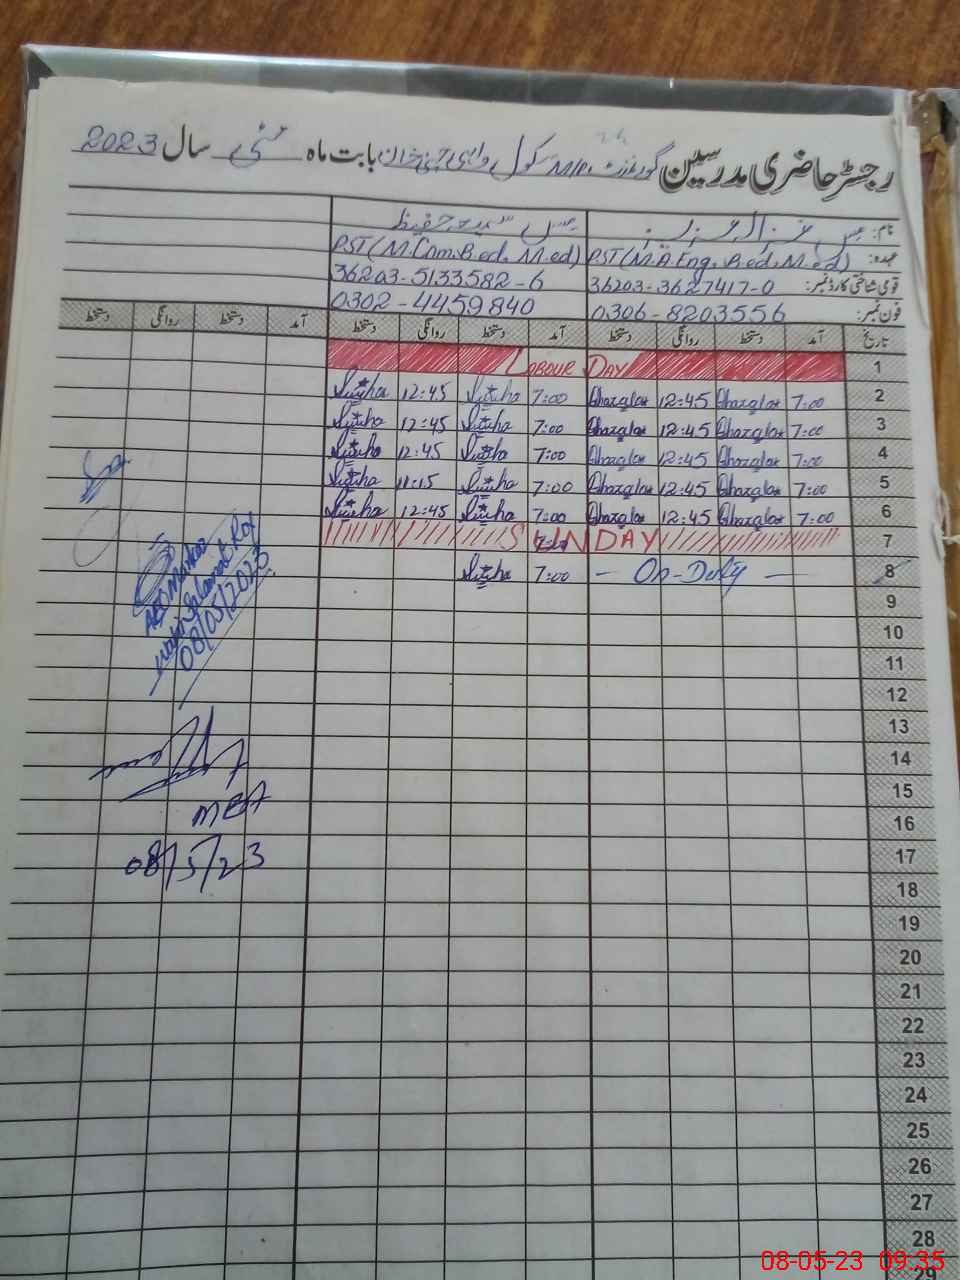 رجسٹر حاضری مدرسین گورنمنٹ M/P سکول واہی جنی خان بابت ماہ مئی سال 2023
نام: مس غزالہ عزیز مس سمیعہ حفیظ
عہدہ: PST (M.A.Eng, B.ed, M.ed) PST (M.Com.B.ed, M.ed)
قومی شناختی کارڈ نمبر: 36203-3627417-0 36203-5133582-6
فون نمبر: 0306-8203556 0302-4459840
تاریخ آمد دستخط روانگی دستخط آمد دستخط روانگی دستخط آمد دستخط روانگی دستخط
1 LABOUR DAY
2 7:00 Ghazala 12:45 Ghazala 7:00 12:45
3 7:00 Ghazala 12:45 Ghazala 7:00 12:45
4 7:00 Ghazala 12:45 Ghazala 7:00 12:45
5 7:00 Ghazala 12:45 Ghazala 7:00 11:15
6 7:00 Ghazala 12:45 Ghazala 7:00 12:45
7 SUNDAY
8 — On-Duty — 7:00
9
10
11
12
13
14
15
16
17
18
19
20
21
22
23
24
25
26
27
28
29
AEO Markaz
08/05/2023
MEA
08/5/23
08-05-23 09:35